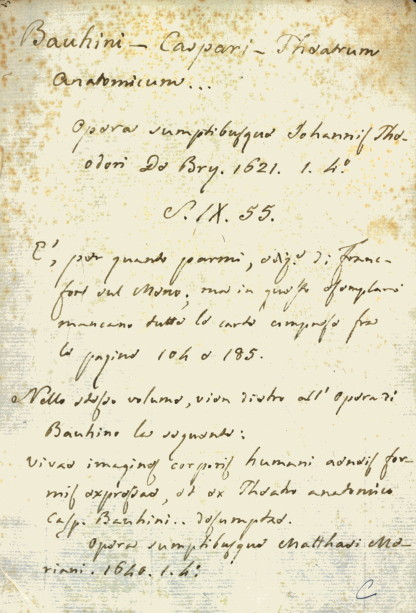 Bauhini - Caspari - Theatrum
Anatomicum...
Opera sumptibusque Johannis Theo-
dori De Bry. 1621. 1. 4.º
S. IX. 55.
E', per quanto parmi, ediz.e di Franc-
fort sul Meno; ma in questo esemplare
mancano tutte le carte comprese fra
le pagine 104 e 185.
Nello stesso volume, vien dietro all'Opera di
Bauhino la seguente:
Vivae imagines corporis humani aeneis for-
mis expressae, et ex Theatro anatomico
Casp. Bauhini.. desumptae.
Opera sumptibusque Matthaei Me-
riani. 1640. 1. 4.º
C